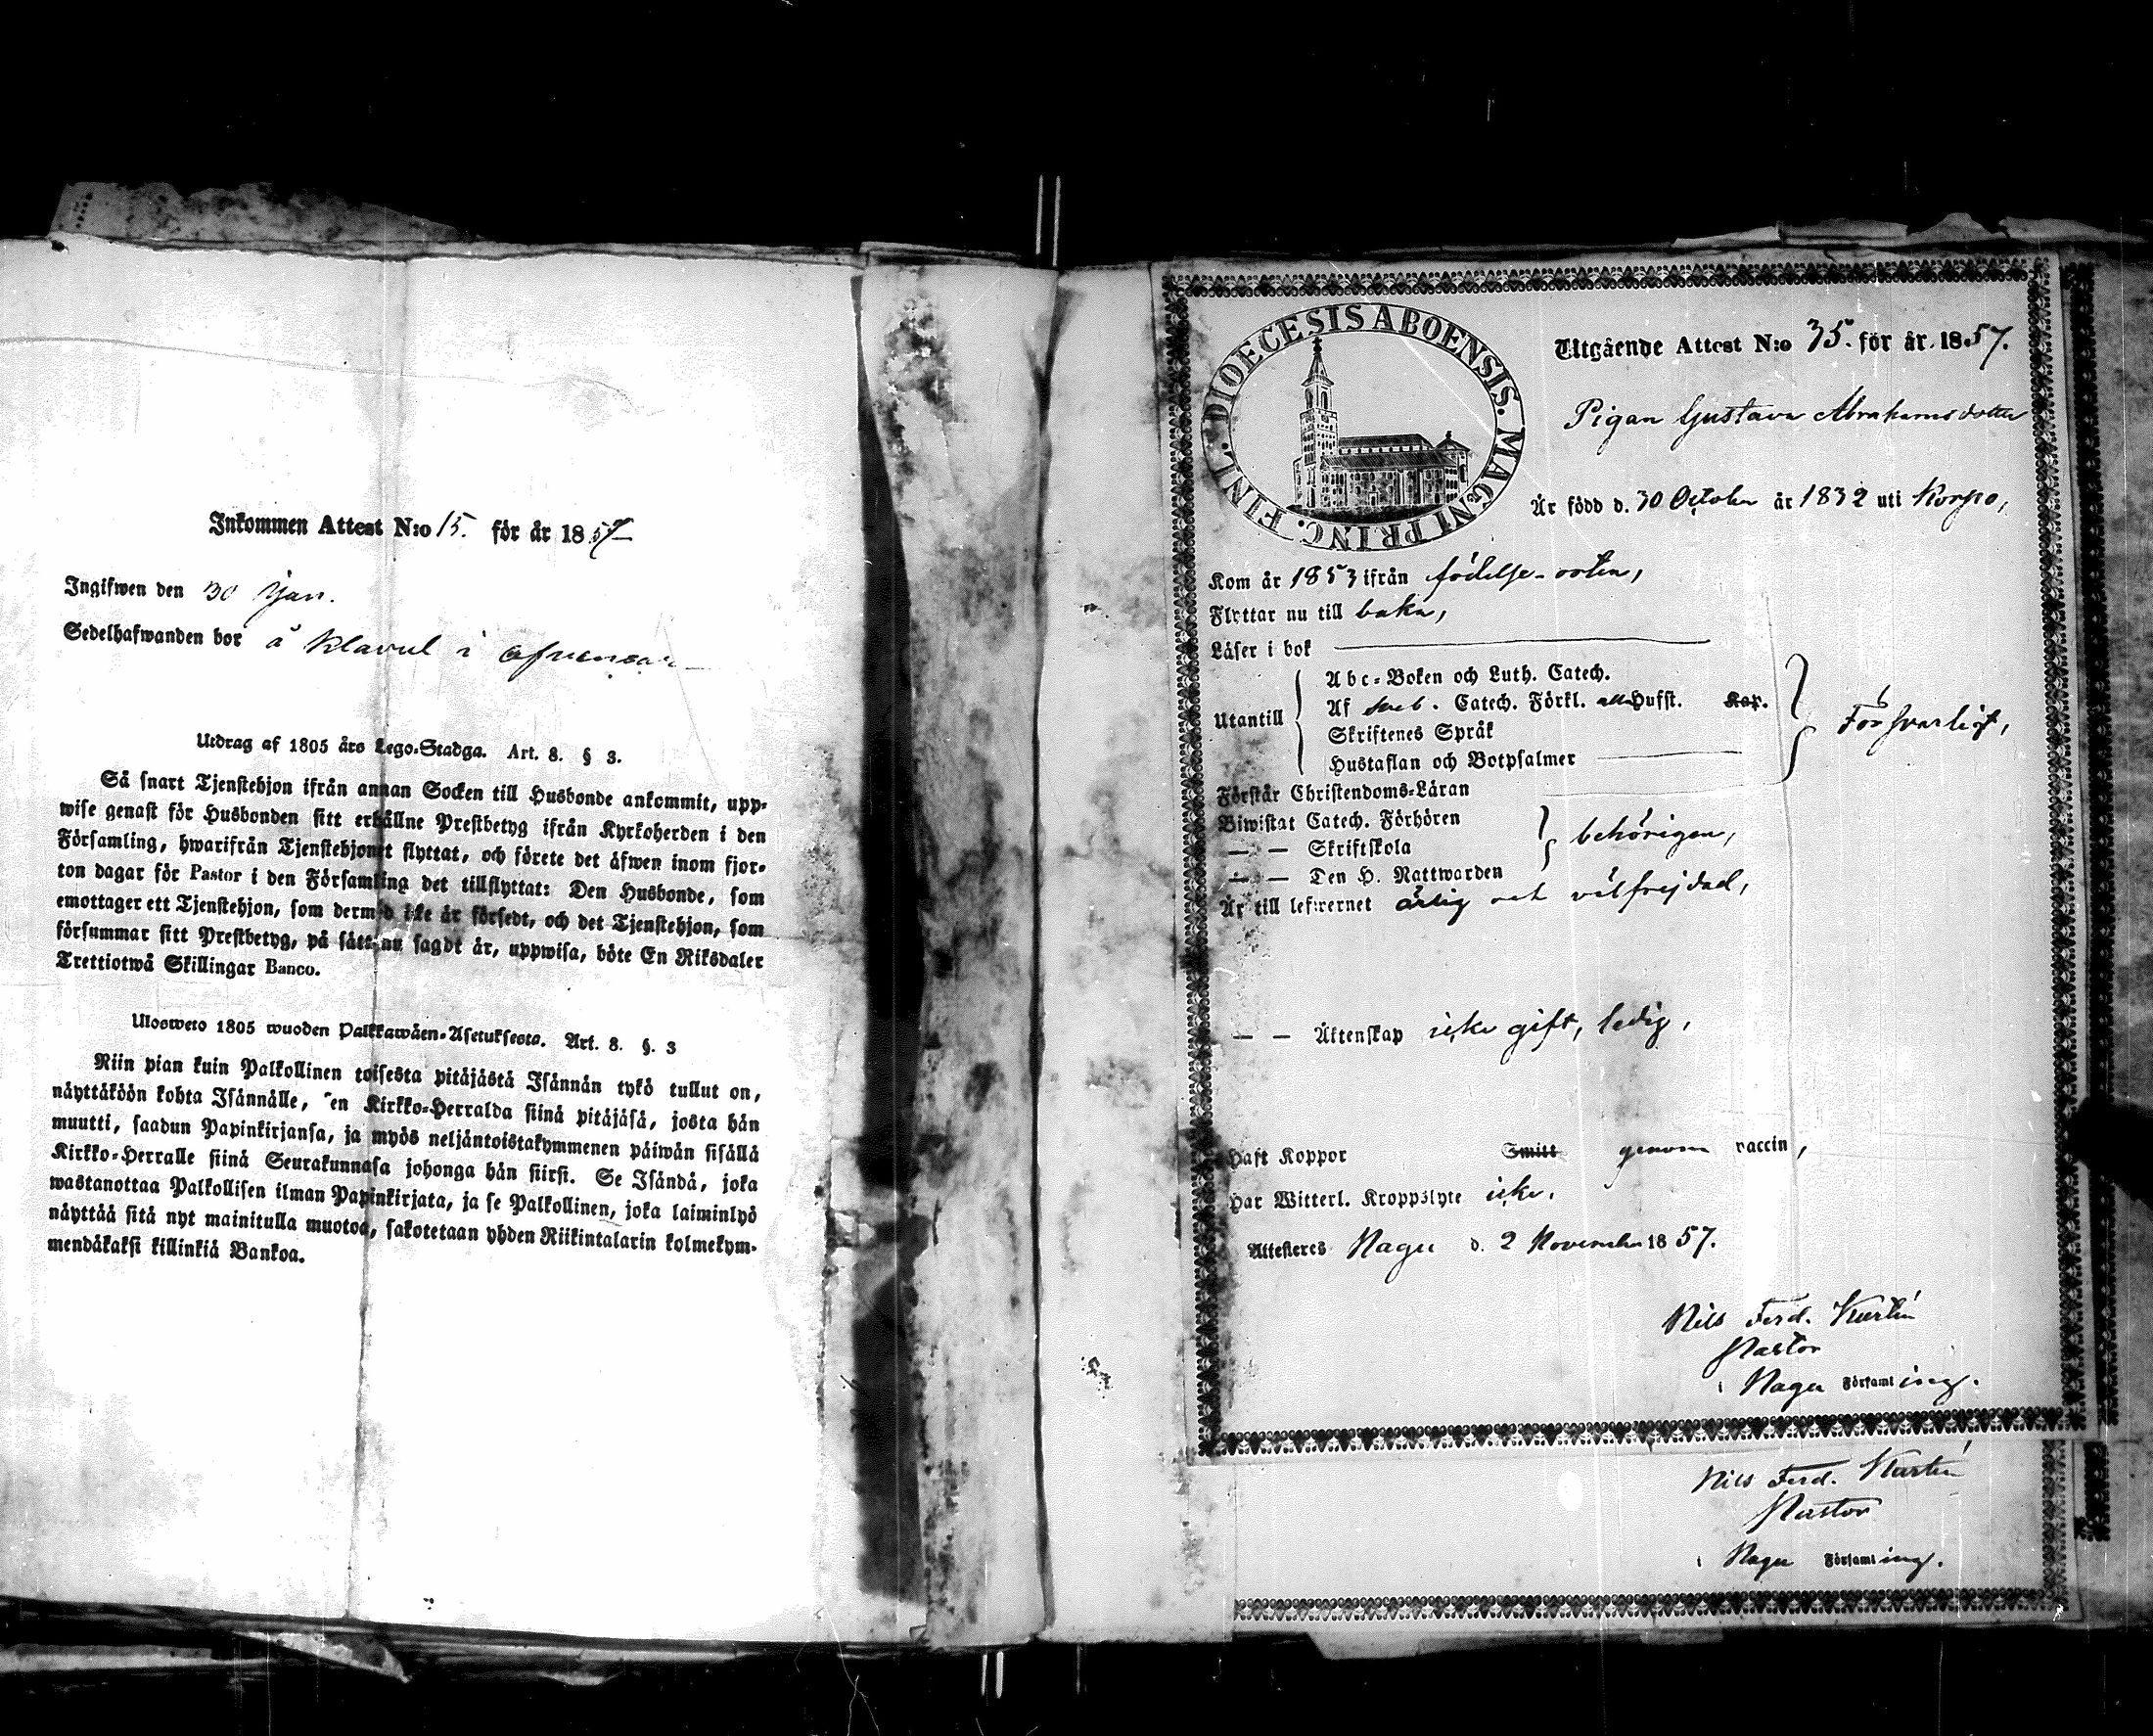 Inkommen Attest N:o 15. för år 1857
Ingifwen den 30 Jan.
Sedelhafwanden bor å Klavul i
Utdrag af 1805 års Lego-Stadga. Art. 8. § 3.
Så snart Tjenstehjon ifrån annan Socken till Husbonde ankommit, upp-
wise genast för Husbonden sitt erhållne Prestbetyg ifrån Kyrkoherden i den
Församling, hwarifrån Tjenstehjonet flyttat, och förete det äfwen inom fjor-
ton dagar för Pastor i den Församling det tillflyttat: Den Husbonde, som
emottager ett Tjenstehjon, som dermed icke är försedt, och det Tjenstehjon, som
försummar sitt Prestbetyg, på sätt nu sagdt är, uppwisa, böte En Riksdaler
Trettiotwå Skillingar Banco.
Ulosweto 1805 wuoden Palkkawäen-Asetuksesta. Art. 8. §. 3
Niin pian kuin Palkollinen toisesta pitäjästä Isännän tykö tullut on,
näyttäköön kohta Isännälle, en Kirkko-Herralda siinä pitäjäsä, josta hän
muutti, saadun Papinkirjansa, ja myös neljäntoistakymmenen päiwän sisällä
Kirkko-Herralle siinä Seurakunnasa johonga hän siirsi. Se Isändä, joka
wastanottaa Palkollisen ilman Papinkirjata, ja se Palkollinen, joka laiminlyö
näyttää sitä nyt mainitulla muotoa, sakotetaan yhden Riikintalarin kolmekym-
mendäkaksi killinkiä Bankoa.
FINL. DIOECESIS ABOENSIS. MAGNI PRINC.
Utgående Attest N:o 35. för år 1857.
Pigan Gustava Abrahamsdotter
Är född d. 30 October år 1832 uti Korpo,
Kom år 1853 ifrån födelse-orten,
Flyttar nu till baka,
Läser i bok
Utantill
Abc-Boken och Luth. Catech.
Af Sveb. Catech. Förkl. alla Hufst. Kap.
Skriftenes Språk
Hustaflan och Botpsalmer
Försvarligt,
Förstår Christendoms-Läran
Biwistat Catech. Förhören
— — Skriftskola
behörigen,
— — Den H. Nattwarden
Är till lefwernet ärlig och välfrejdad,
— — Äktenskap icke gift, ledig,
Haft Koppor Smitt genom vaccin,
Har Witterl. Kroppslyte icke.
Attesteres Nagu d. 2 November 1857.
Nils Ferd.
Pastor
i Nagu Församling.
Nils Ferd.
Pastor
i Nagu Församling.